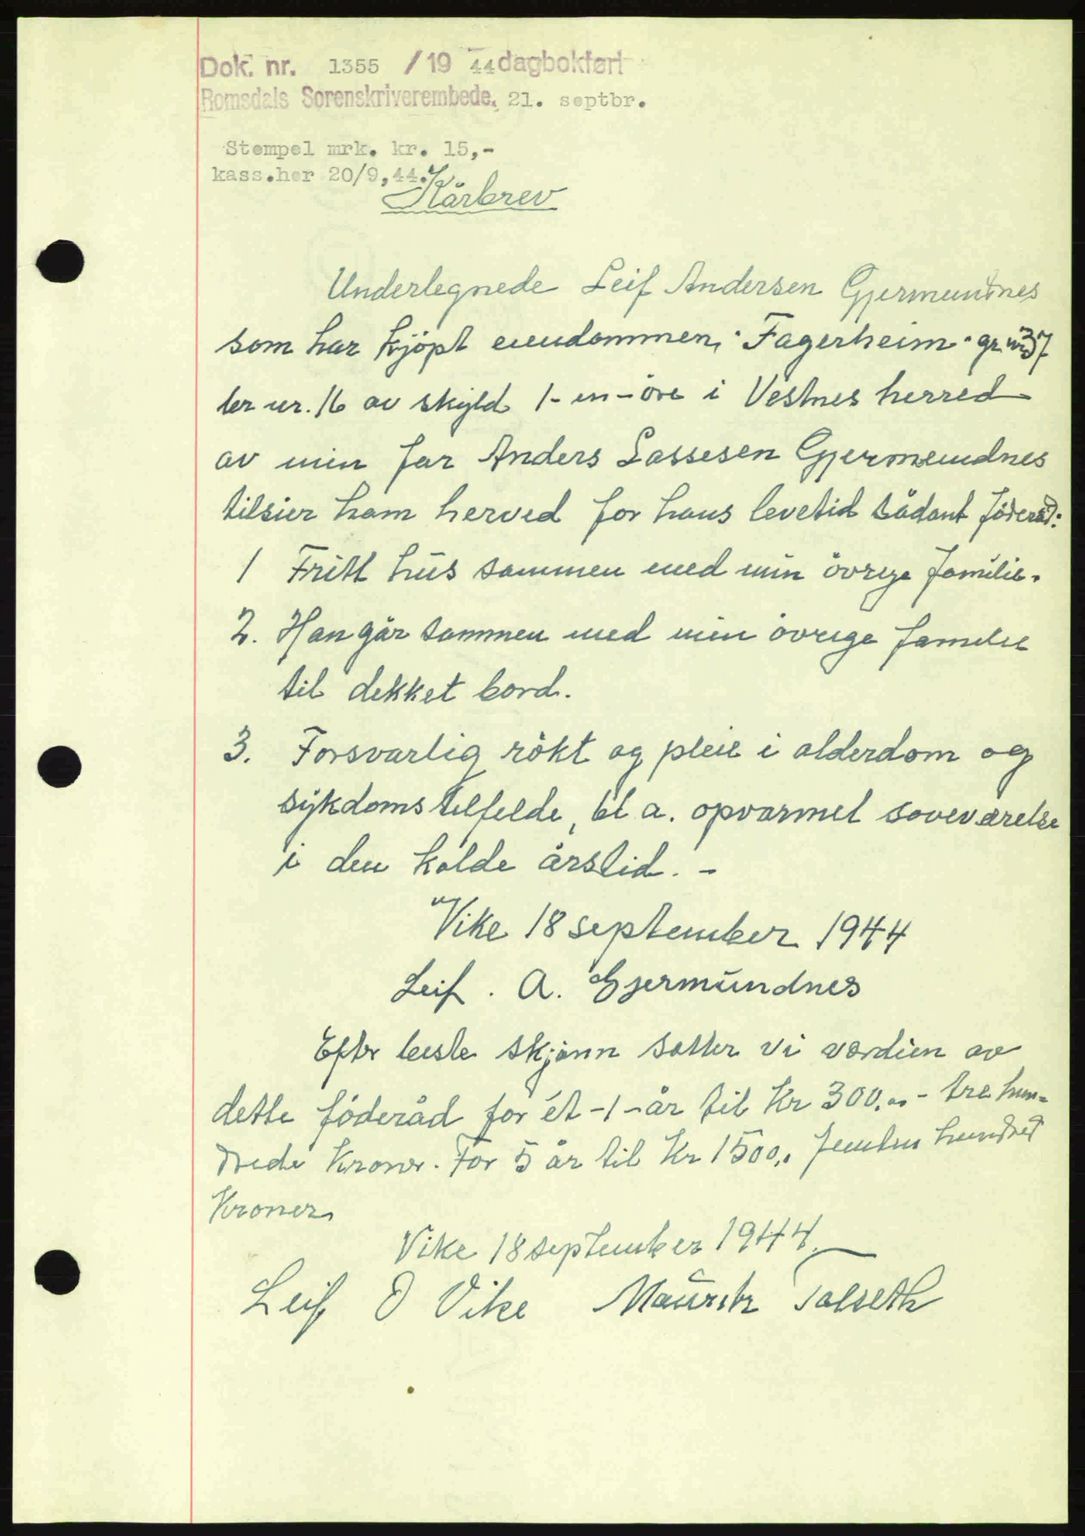 Dok. nr. 1355 / 19 44 dagbokført
Romsdals Sorenskriverembede, 21. septbr.
Stempel mrk. kr. 15,-
kass.her 20/9,44.
Kårbrev
Underlegnede Leif Andersen Gjermundnes
som har kjöpt eiendommen, "Fagerheim" gr nr 37
br nr. 16 av skyld 1- en - öre i Vestnes herred
av min far Anders Lassesen Gjermundnes
tilsier ham herved for hans levetid sådant föderåd:
1 Fritt hus sammen med min övrige familie.
2. Han går sammen med min övrige familie
til dekket bord.
3. Forsvarlig rökt og pleie i alderdom og
sykdomstilfelde, bl a. opvarmet soveværelse
i den kolde årstid. -
Vike 18 september 1944
Leif. A. Gjermundnes
Efter beste skjønn setter vi værdien av
dette föderåd for ét -1- år til Kr 300,00 - tre hun-
drede Kroner. For 5 år til Kr 1500,. femten hundred
Kroner
Vike 18 september 1944.
Leif O Vike Mauritz Talseth